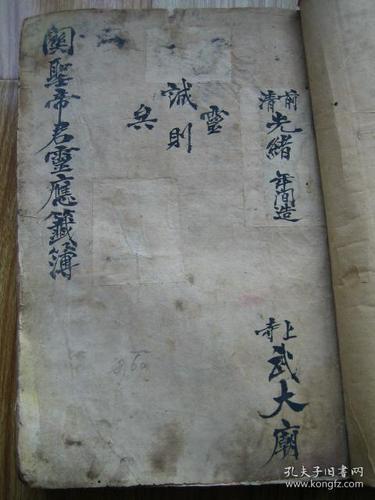 前清光緒年间造
上寺武大廟
誠則靈矣
関聖帝君靈應籤簿
孔夫子旧书网